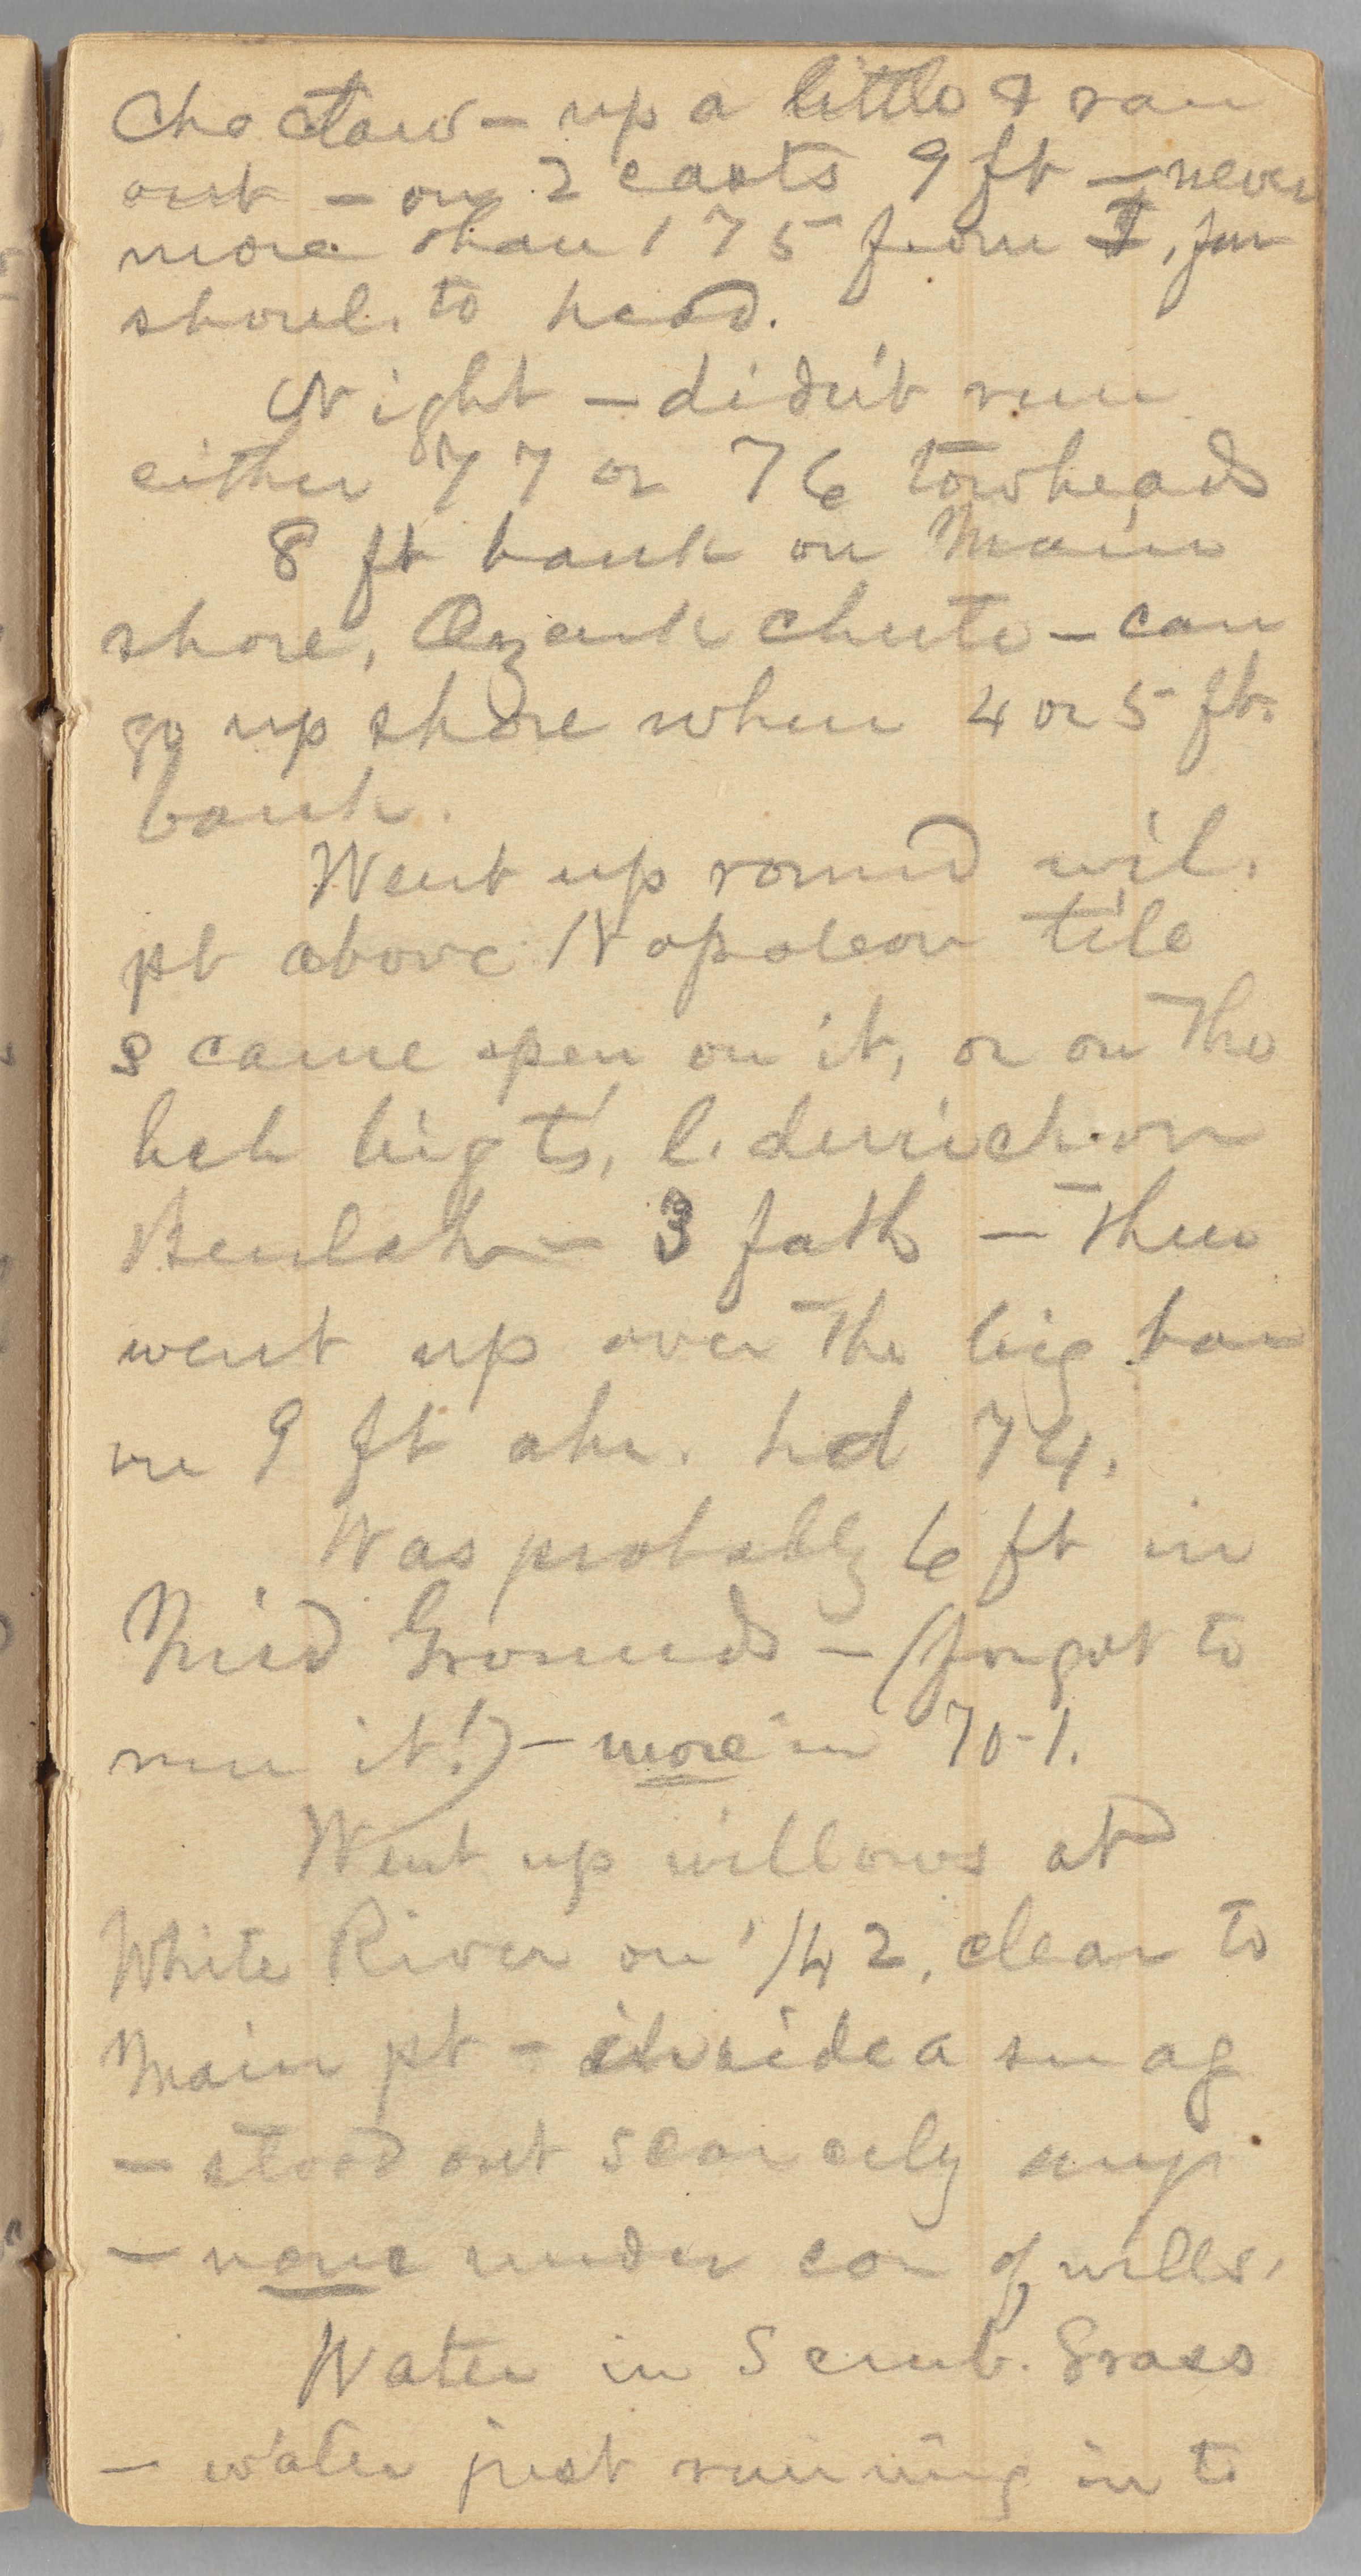 Choctaw – up a little & ran
out – on 2 casts 9 ft – never
more than 175 from I, fm
shorel. to head.
Night – didn't run
either 77 or 76 towheads
8 ft bank on Main
shore, Ozark chute – can
go up shore when 4 or 5 ft.
bank.
Went up round wil.
pt above Napoleon till
8 came open on it, or on the
hch big t's, l.
Beulah – 3 fath – then
went up over the big bar
in 9 ft abv. hd 74.
Was probably 6 ft in
Mid Grounds – (forgot to
run it!) – more in 70-1.
Went up willows at
White River on 1/42, clear to
Main pt – inside a snag
– stood out scarcely any
– none under cor of wills.
Water in Scrub. Grass
– water just running in to